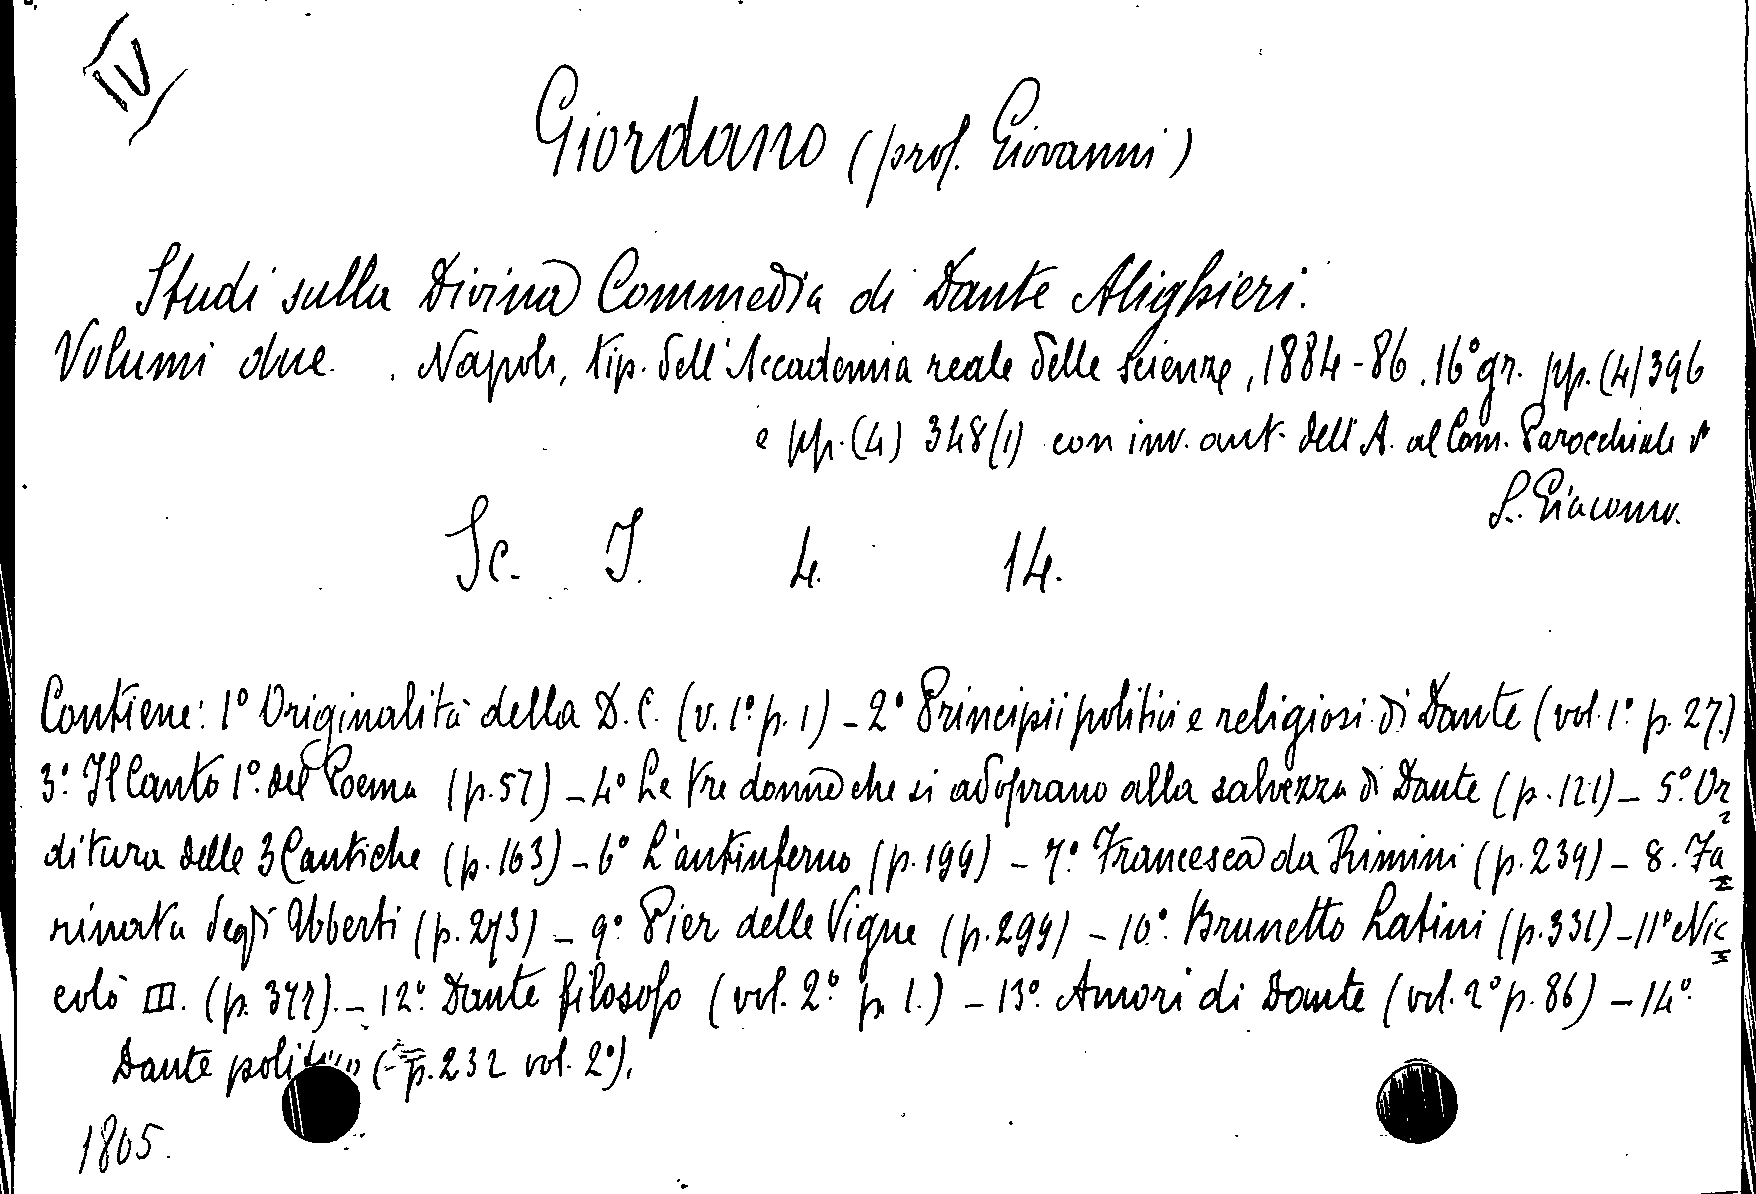 IV
Giordano (prof. Giovanni)
Studi sulla Divina Commedia di Dante Alighieri.
Volumi due. Napoli, tip. dell'Accademia reale delle scienze, 1884-86. 16° gr. pp. (4) 396
e pp. (4) 348 (1) con inv. aut. dell'A. al Com. Parocchiale
S. Giacomo.
Sc. I. 4. 14.
Contiene: 1° Originalità della D. C. (v. 1° p. 1) - 2° Principii politici e religiosi di Dante (vol. 1° p. 27.)
3° Il Canto 1° del Poema (p. 57) - 4° Le tre donne che si adoprano alla salvezza di Dante (p. 121) - 5° Or
ditura delle 3 Cantiche (p. 163) - 6° L'antinferno (p. 199) - 7° Francesca da Rimini (p. 239) - 8. Fa
rinata degli Ubberti (p. 273) - 9° Pier delle Vigne (p. 299) - 10° Brunetto Latini (p. 331) - 11° Nic
colò III. (p. 377). - 12° Dante filosofo (vol. 2° p. 1.) - 13° Amori di Dante (vol. 2° p. 86) - 14°
Dante politico (p. 232 vol. 2°).
1805.